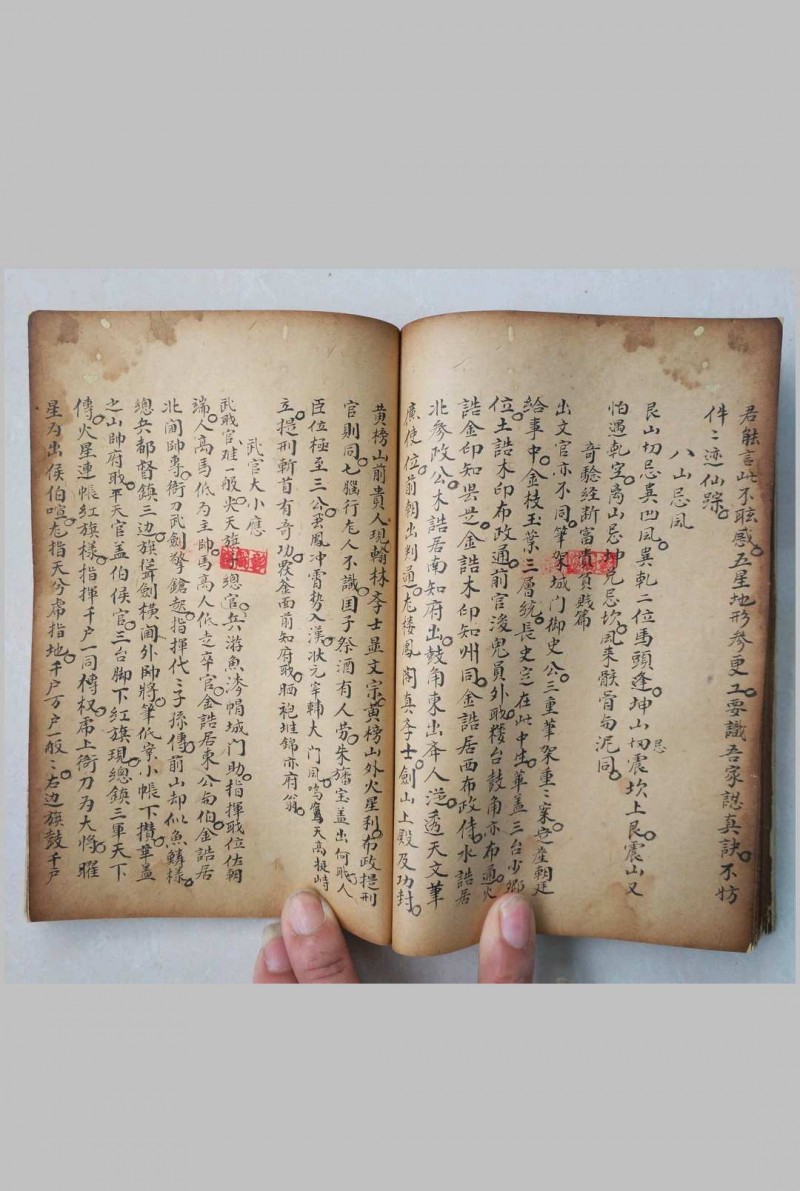 君能言此不眩惑。五星地形參更工。要識吾家認真訣。不妨
件〻迹仙踪。
八山忌風
艮山切忌巽凹風。巽乾二位馬頭逢。坤山切忌震坎上艮。震山又
怕遇乾穿。离山忌坤兑忌坎。風來骸骨自泥同。
奇驗经断富貴貧賤篇
出文官亦不同。筆架城门御史公。三重華架重〻案。定產朝廷
給事中。金枝玉葉三層統。長史定在此中生。華盖三台少卿
位。土誥木印布政通。前官後鬼員外职。楼台鼓角亦布通。火
誥金印知县是。金誥木印知州同。金誥居西布政侍。水誥居
北參政公。木誥居南知府出。鼓角東出本人逆。透天文筆
廉使位。前朝出判通。龙楼鳳阁真李士。劍山上殿及功封。
黄榜山前貴人現。翰林李士显文宗。黄榜山外火星利。布政提刑
官則同。七腦行龙人不識。国子祭酒有人劳。朱旛宝盖出何职。人
臣位極至三公。君鳳冲霄势入漢。狀元宰輔大门風。鳴鷹天高挺峙
立。提刑斬首有奇功。覆釜面前知府职。晒袍堆錦亦府翁。
武官大小應
武职官难一般。尖天旗總官兵。游魚滲帽城门助。指揮职位佐朝
端。人高馬低为主帥。馬高人低是卒官。金誥居東公为伯。金誥居
北阃帥專。衙刀武劍擎鎗趂。指揮代〻子孫傳。前山却似魚鳞樣。
總兵都督鎮三边。旗聳劍横阃外帥將。筆低案小帳下攢。華盖
之山帥府职。平天官盖伯侯官。三台脚下紅旗現。總鎮三軍天下
傳。火星連帳紅旗樣。指揮千户一同傳权。席上衙刀为大將。曜
星为出侯伯喧。龙指天兮虎指地。千户万户一般〻。右边旗鼓千户